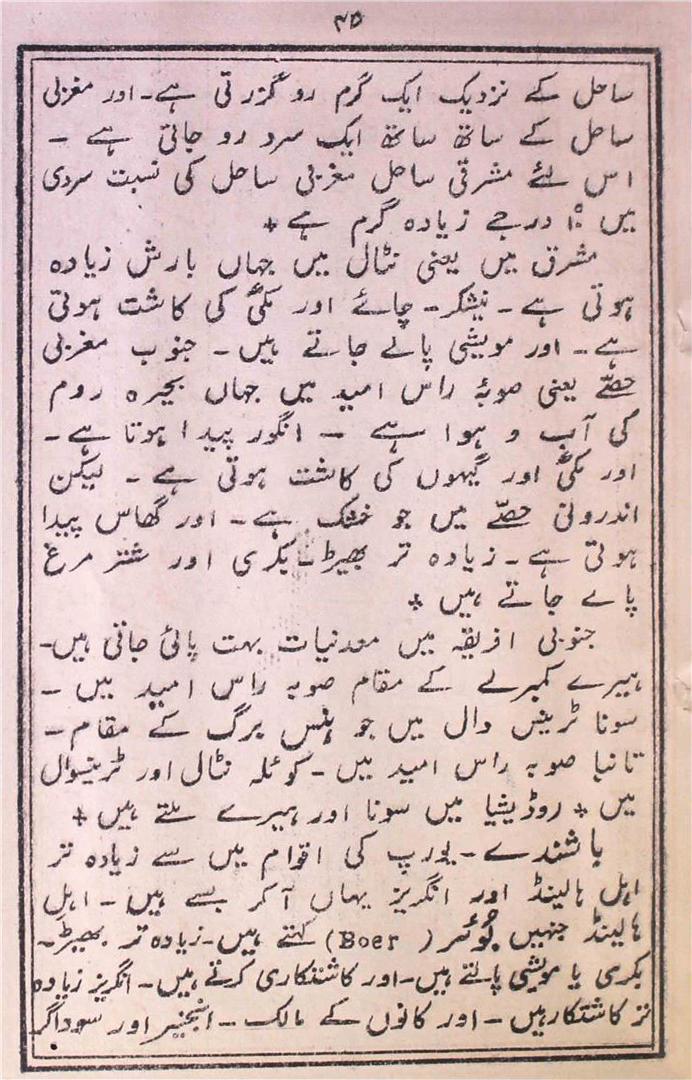 ۴۵
ساحل کے نزدیک ایک گرم رو گزرتی ہے۔ اور مغربی
ساحل کے ساتھ ساتھ ایک سرد رو جاتی ہے ۔
اس لئے مشرقی ساحل مغربی ساحل کی نسبت سردی
میں ۱۰° درجے زیادہ گرم ہے +
مشرق میں یعنی نٹال میں جہاں بارش زیادہ
ہوتی ہے۔ نیشکر۔ چائے اور مکئی کی کاشت ہوتی
ہے۔ اور مویشی پالے جاتے ہیں۔ جنوب مغربی
حصے یعنی صوبۂ راس امید میں جہاں بحیرہ روم
کی آب و ہوا ہے ۔ انگور پیدا ہوتا ہے۔
اور مکئی اور گیہوں کی کاشت ہوتی ہے ۔ لیکن
اندرونی حصے میں جو خشک ہے۔ اور گھاس پیدا
ہوتی ہے۔ زیادہ تر بھیڑ۔ بکری اور شتر مرغ
پاے جاتے ہیں +
جنوبی افریقہ میں معدنیات بہت پائی جاتی ہیں۔
ہیرے کمبرلے کے مقام صوبہ راس امید میں ۔
سونا ٹرینس وال میں جو ہنس برگ کے مقام۔
تانبا صوبہ راس امید میں ۔ کوئلہ نٹال اور ٹرینسوال
میں + روڈیشیا میں سونا اور ہیرے ملتے ہیں +
باشندے ۔ یورپ کی اقوام میں سے زیادہ تر
اہل ہالینڈ اور انگریز یہاں آکر بسے ہیں ۔ اہل
ہالینڈ جنہیں بُوئر (Boer) کہتے ہیں۔ زیادہ تر بھیڑ۔
بکری یا مویشی پالتے ہیں۔ اور کاشتکاری کرتے ہیں۔ انگریز زیادہ
تر کاشتکار ہیں ۔ اور کانوں کے مالک ۔ انجنیر اور سوداگر